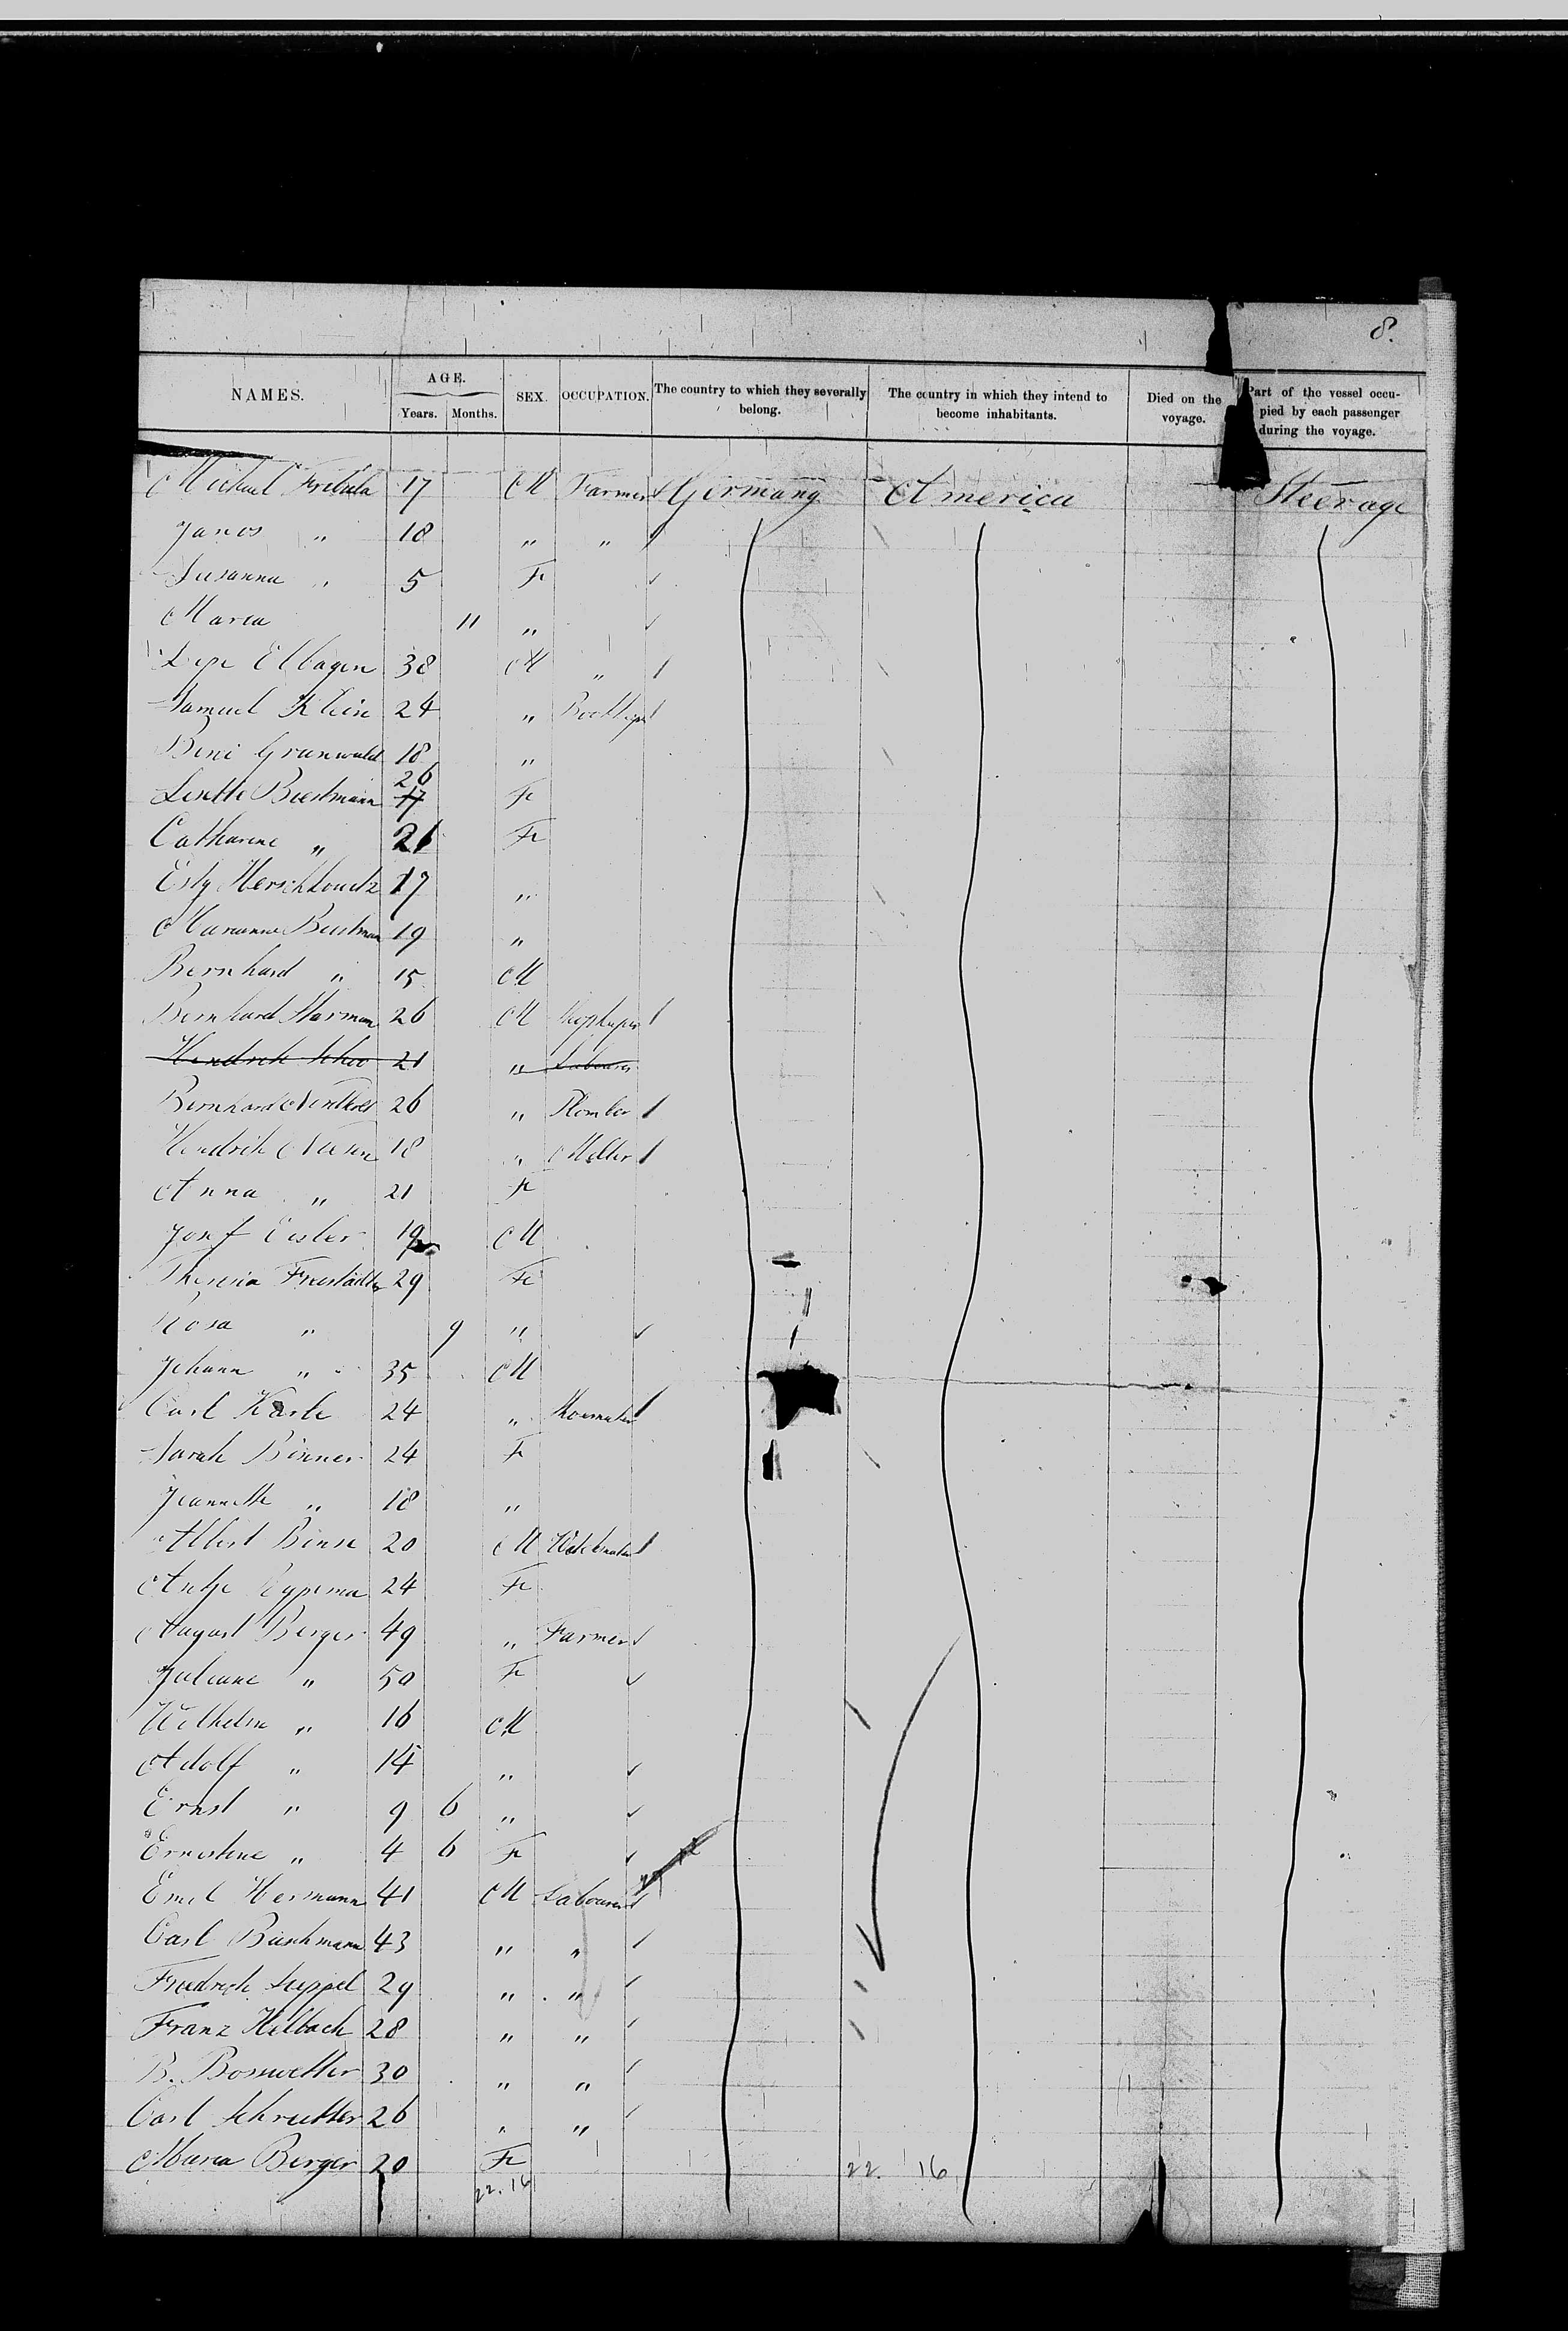 8.
NAMES. AGE. Years. Months. SEX. OCCUPATION. The country to which they severally belong. The country in which they intend to become inhabitants. Died on the voyage. Part of the vessel occupied by each passenger during the voyage.
Michael 17 M Farmer Germany America Steerage
Janos " 18 " "
Susanna " 5 Fe
Maria 11 "
38 M "
Samuel Klein 24 "
Beni Grunwald 18 "
Lisette 26 17 Fe
Catharine " 21 Fe
Esty Herschkowitz 17 "
Marianne 19 "
Bernhard " 15 M
Bernhard Harman 26 M
Hendrik 21 " Labourer
Bernhard 26 " Plomber
Hendrik 18 " Miller
Anna " 21 Fe
Josef Eisler 19 M
Theresia 29 Fe
Rosa " 9 "
Johann " 35 M
Carl Karle 24 " Shoemaker
Sarah Binner 24 Fe
Jeannette " 18 "
Albert 20 M Watchmaker
Antje Eypema 24 Fe
August Berger 49 " Farmer
Juliane " 50 Fe
Wilhelm " 16 M
Adolf " 14 "
Ernst " 9 6 "
Ernestine " 4 6 Fe
Emil Hermann 41 M Labourer
Carl Buschmann 43 " "
Friedrich 29 " "
Franz Hilbach 28 " "
B. 30 " "
Carl 26 " "
Maria Berger 20 Fe
22. 16 22. 16